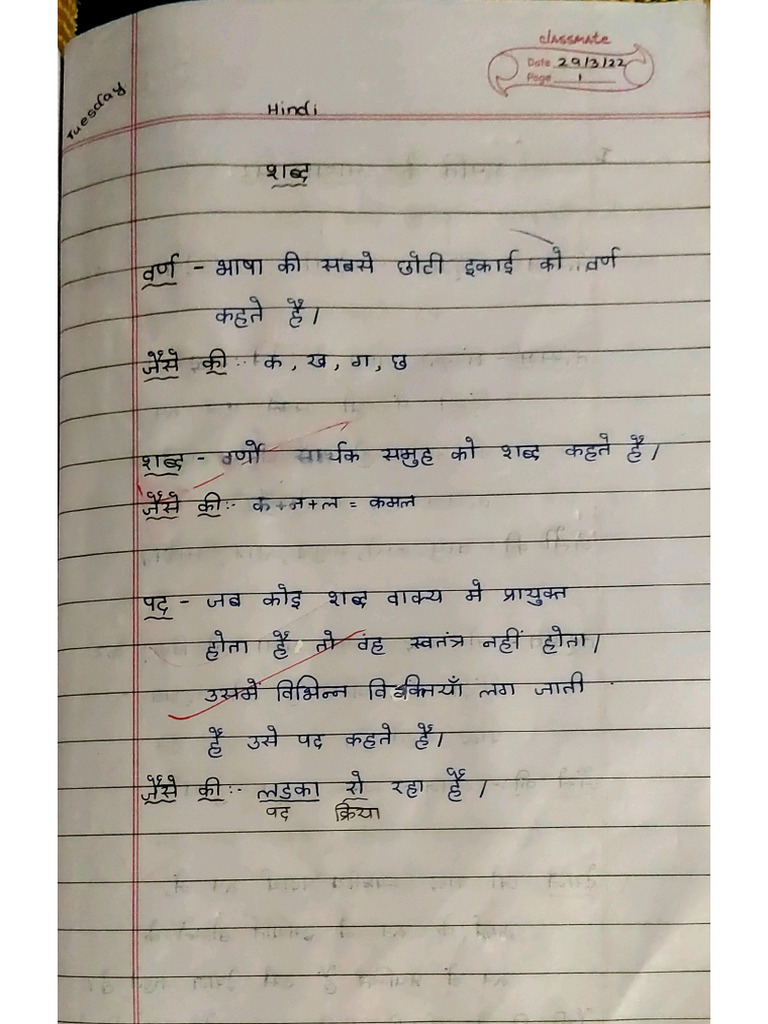 classmate
Tuesday
Date 29/3/22
Page 1
Hindi
शब्द
वर्ण - भाषा की सबसे छोटी इकाई को वर्ण
कहते हैं।
जैसे की :- क, ख, ग, छ
शब्द - वर्णो सार्थक समुह को शब्द कहते हैं।
जैसे की :- क+म+ल = कमल
पद - जब कोइ शब्द वाक्य मे प्रायुक्त
होता हैं तो वह स्वतंत्र नहीं होता।
उसमें विभिन्न विभक्तियाँ लग जाती
हैं उसे पद कहते हैं।
जैसे की :- लडका रो रहा हैं।
पद क्रिया